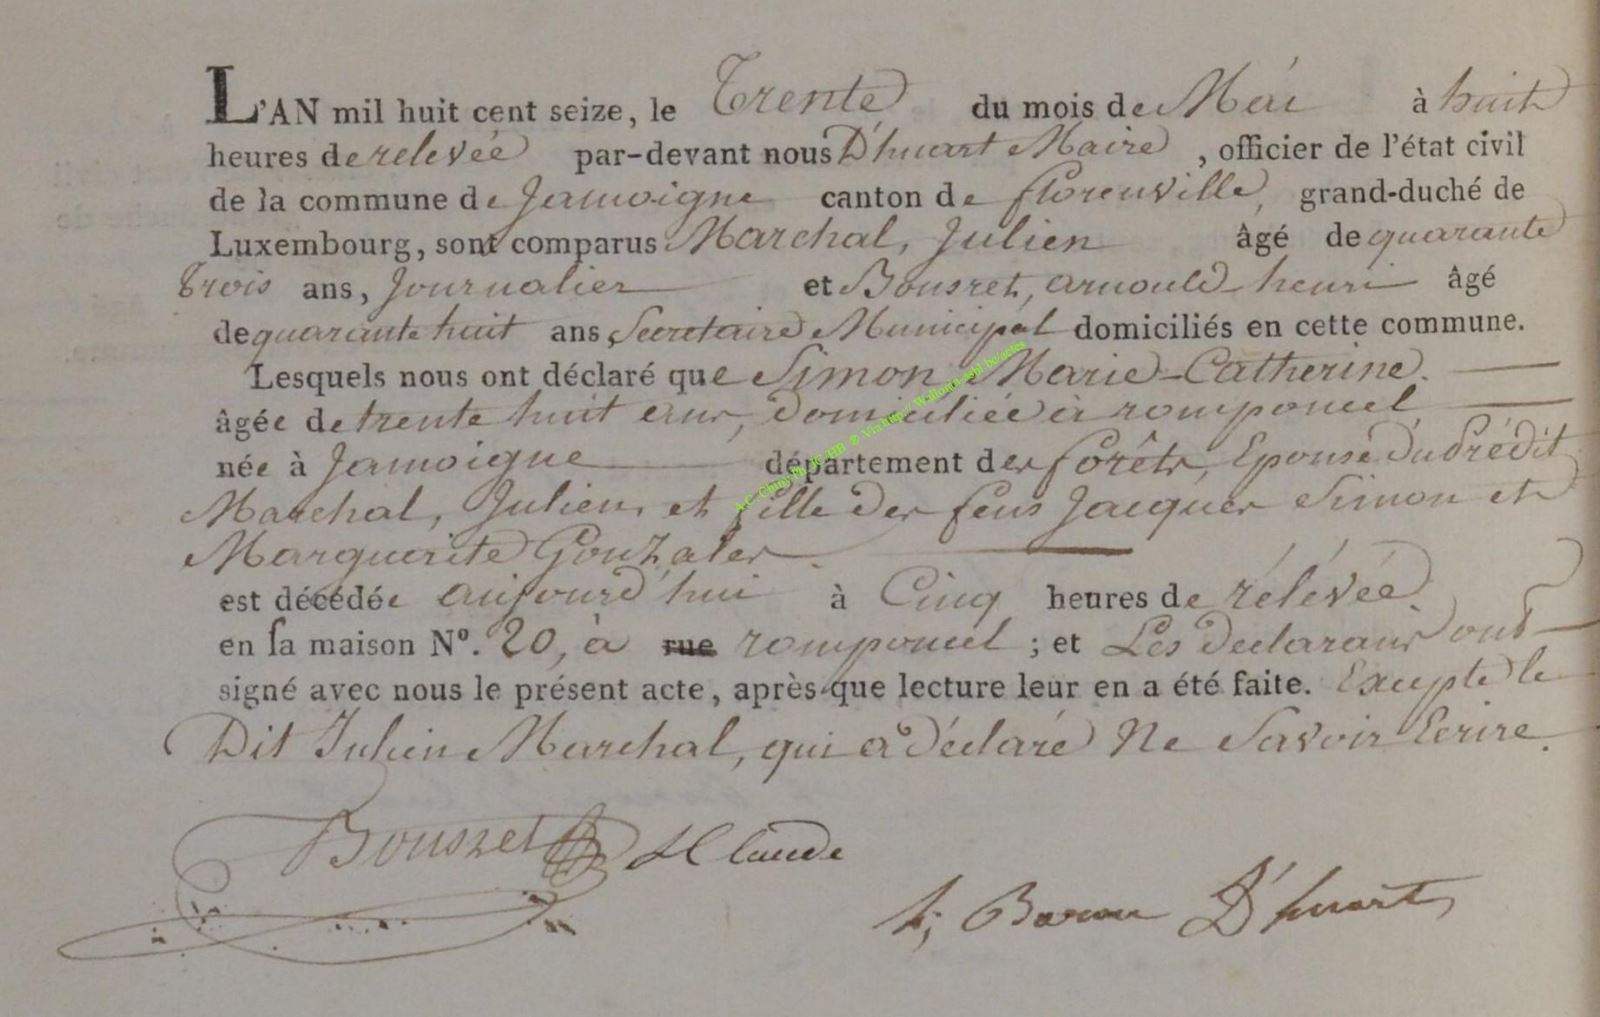 L'AN mil huit cent seize, le Trente du mois de Mai à huit
heures de relevée par-devant nous D'huart Maire, officier de l'état civil
de la commune de Jamoigne canton de florenville, grand-duché de
Luxembourg, sont comparus Marchal, Julien âgé de quarante
trois ans, Journalier et Bousret, arnould henri âgé
de quarante huit ans, Secretaire Municipal domiciliés en cette commune.
Lesquels nous ont déclaré que Simon Marie-Catherine.
âgée de trente huit ans, domiciliée à romponcel
née à Jamoigne département des forêts, Epouse du Prédit
Marchal, Julien, et fille des feus Jacques Simon et
Marguerite Gonzales.
est décédée aujourd'hui à Cinq heures de rélévée.
en sa maison Nº. 20, à rue romponcel ; et Les declarans ont
signé avec nous le présent acte, après que lecture leur en a été faite. Excepté le
Dit Julien Marchal, qui a déclaré Ne Savoir Ecrire.
Bousret Claude
Baron D'huart